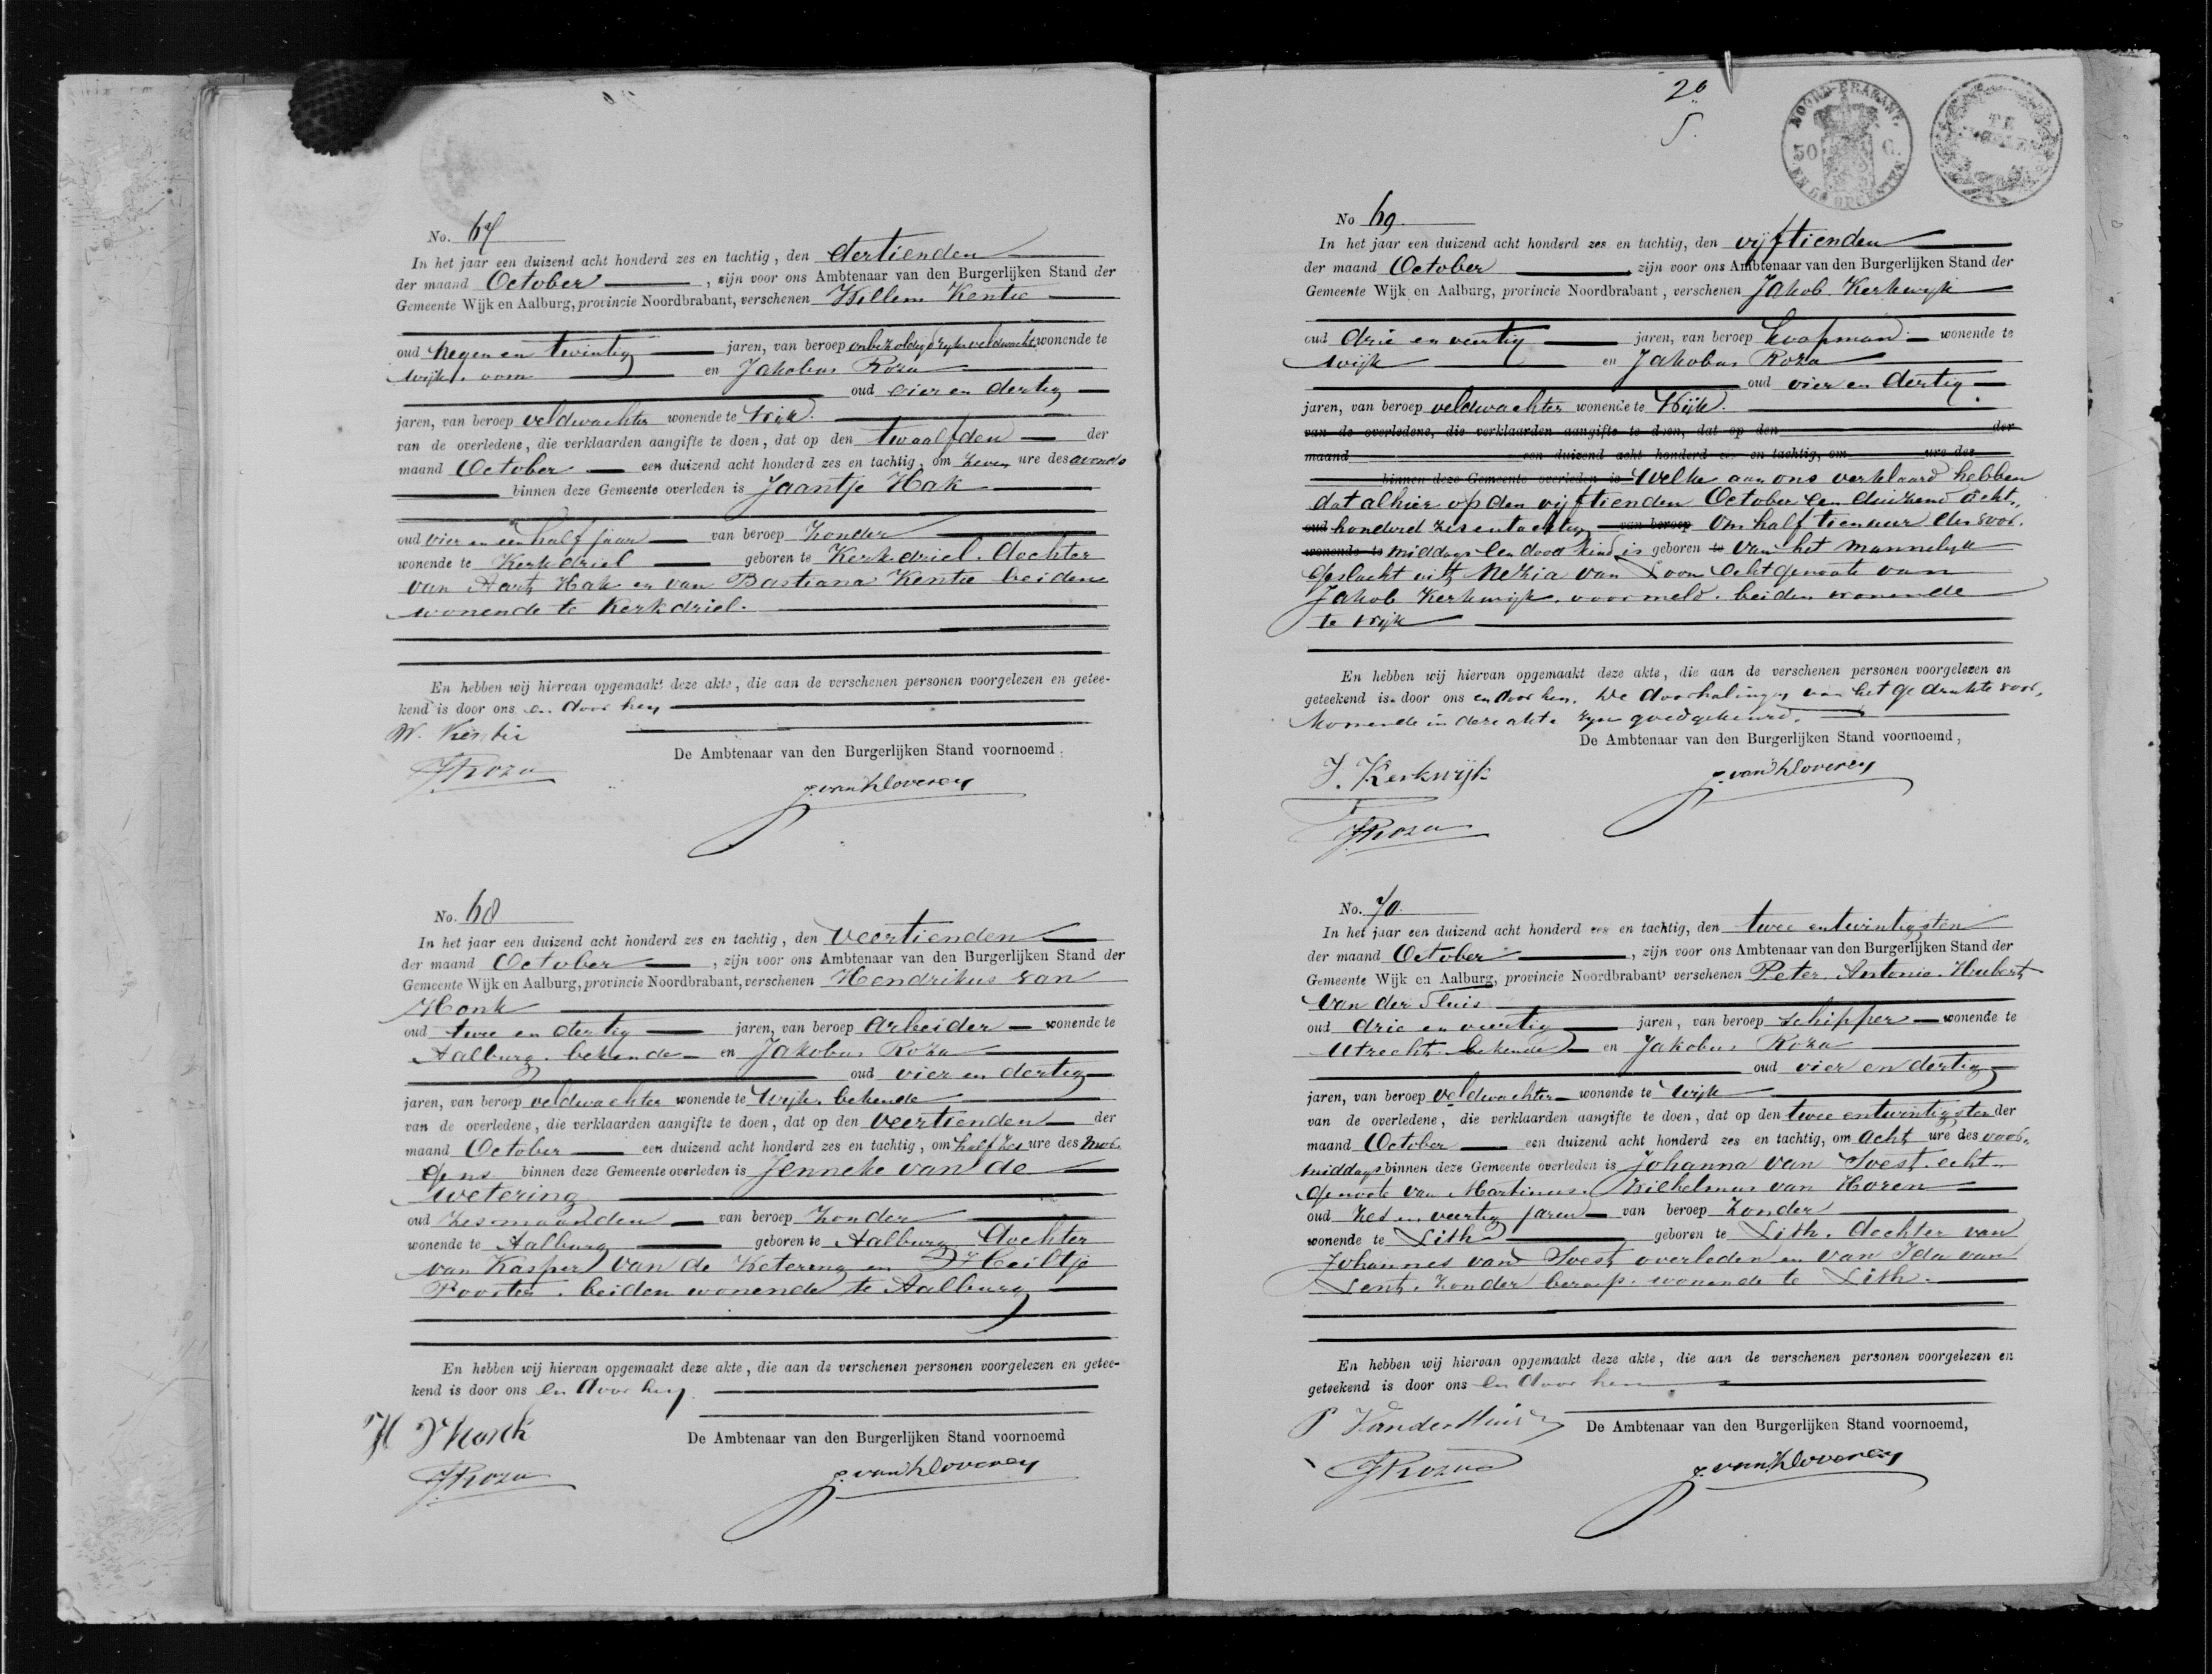 No. 67
In het jaar een duizend acht honderd zes en tachtig, den dertienden
der maand October, zijn voor ons Ambtenaar van den Burgerlijken Stand der
Gemeente Wijk en Aalburg, provincie Noordbrabant, verschenen Willem Kentie
oud negen en twintig jaren, van beroep onbezoldigd rijksveldwachter wonende te
Wijk. oom en Jakobus Roza
oud vier en dertig
jaren, van beroep veldwachter wonende te Wijk.
van de overledene, die verklaarden aangifte te doen, dat op den twaalfden der
maand October een duizend acht honderd zes en tachtig, om zeven ure des avonds
binnen deze Gemeente overleden is Jaantje Hak
oud vier en een half jaar van beroep zonder
wonende te Kerkdriel geboren te Kerkdriel. dochter
van Aart Hak en van Bastiana Kentie beiden
wonende te Kerkdriel.
En hebben wij hiervan opgemaakt deze akte, die aan de verschenen personen voorgelezen en getee-
kend is door ons en door hen
W. Kentie
De Ambtenaar van den Burgerlijken Stand voornoemd,
JRoza
J. van Kloveren
No. 68
In het jaar een duizend acht honderd zes en tachtig, den veertienden
der maand October, zijn voor ons Ambtenaar van den Burgerlijken Stand der
Gemeente Wijk en Aalburg, provincie Noordbrabant, verschenen Hendrikus van
Honk
oud twee en dertig jaren, van beroep arbeider wonende te
Aalburg. bekende en Jakobus Roza
oud vier en dertig
jaren, van beroep veldwachter wonende te Wijk. bekende
van de overledene, die verklaarden aangifte te doen, dat op den veertienden der
maand October een duizend acht honderd zes en tachtig, om half zes ure des mor-
gens binnen deze Gemeente overleden is Jenneke van de
Wetering
oud zes maanden van beroep zonder
wonende te Aalburg geboren te Aalburg dochter
van Kasper van de Wetering en Heiltje
Pooster. beiden wonende te Aalburg
En hebben wij hiervan opgemaakt deze akte, die aan de verschenen personen voorgelezen en getee-
kend is door ons en door hen.
De Ambtenaar van den Burgerlijken Stand voornoemd
JRoza
J. van Kloveren
20
NOORD-BRABANT.
50 C.
No 69.
In het jaar een duizend acht honderd zes en tachtig, den vijftienden
der maand October, zijn voor ons Ambtenaar van den Burgerlijken Stand der
Gemeente Wijk en Aalburg, provincie Noordbrabant, verschenen Jakob Kerkwijk
oud drie en veertig jaren, van beroep koopman wonende te
Wijk en Jakobus Roza
oud vier en dertig
jaren, van beroep veldwachter wonende te Wijk.
van de overledene, die verklaarden aangifte te doen, dat op den der
maand een duizend acht honderd zes en tachtig, om ure des
binnen deze Gemeente overleden is Welke aan ons verklaard hebben
dat alhier op den vijftienden October een duizend acht-
oud honderd zes en tachtig van beroep om half tien uur des voor-
wonende te middags een dood kind is geboren te van het mannelijk
geslacht uit Mezia van Loon echtgenoote van
Jakob Kerkwijk. voormeld. beiden wonende
te Wijk
En hebben wij hiervan opgemaakt deze akte, die aan de verschenen personen voorgelezen en
geteekend is door ons en door hen. De doorhalingen van het gedrukte voor-
komende in deze akte zijn goedgekeurd.
De Ambtenaar van den Burgerlijken Stand voornoemd,
J. Kerkwijk
J. van Kloveren
JRoza
No. 70.
In het jaar een duizend acht honderd zes en tachtig, den twee en twintigsten
der maand October, zijn voor ons Ambtenaar van den Burgerlijken Stand der
Gemeente Wijk en Aalburg, provincie Noordbrabant verschenen Peter Antonie Hubert
van der Sluis
oud drie en veertig jaren, van beroep schipper wonende te
Utrecht. bekende en Jakobus Roza
oud vier en dertig
jaren, van beroep veldwachter wonende te Wijk
van de overledene, die verklaarden aangifte te doen, dat op den twee en twintigsten der
maand October een duizend acht honderd zes en tachtig, om acht ure des voor-
middags binnen deze Gemeente overleden is Johanna van Soest. echt-
genoote van Martinus. Wilhelmus van Horen
oud zes en veertig jaren van beroep zonder
wonende te Lith geboren te Lith. dochter van
Johannes van Soest overleden en van Ida van
Lent. zonder beroep. wonende te Lith.
En hebben wij hiervan opgemaakt deze akte, die aan de verschenen personen voorgelezen en
geteekend is door ons en door hen
P VanderSluis
De Ambtenaar van den Burgerlijken Stand voornoemd,
JRoza
J. van Kloveren